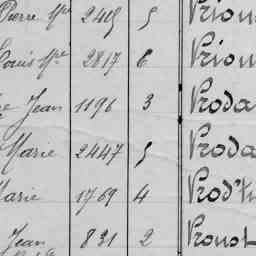 Pierre Mie 2415 5 Priou
Louis Mie 2817 6 Priou
Jean 1196 3 Proda
Marie 2447 5 Proda
Marie 1769 4 Prod'h
Jean 831 2 Proust